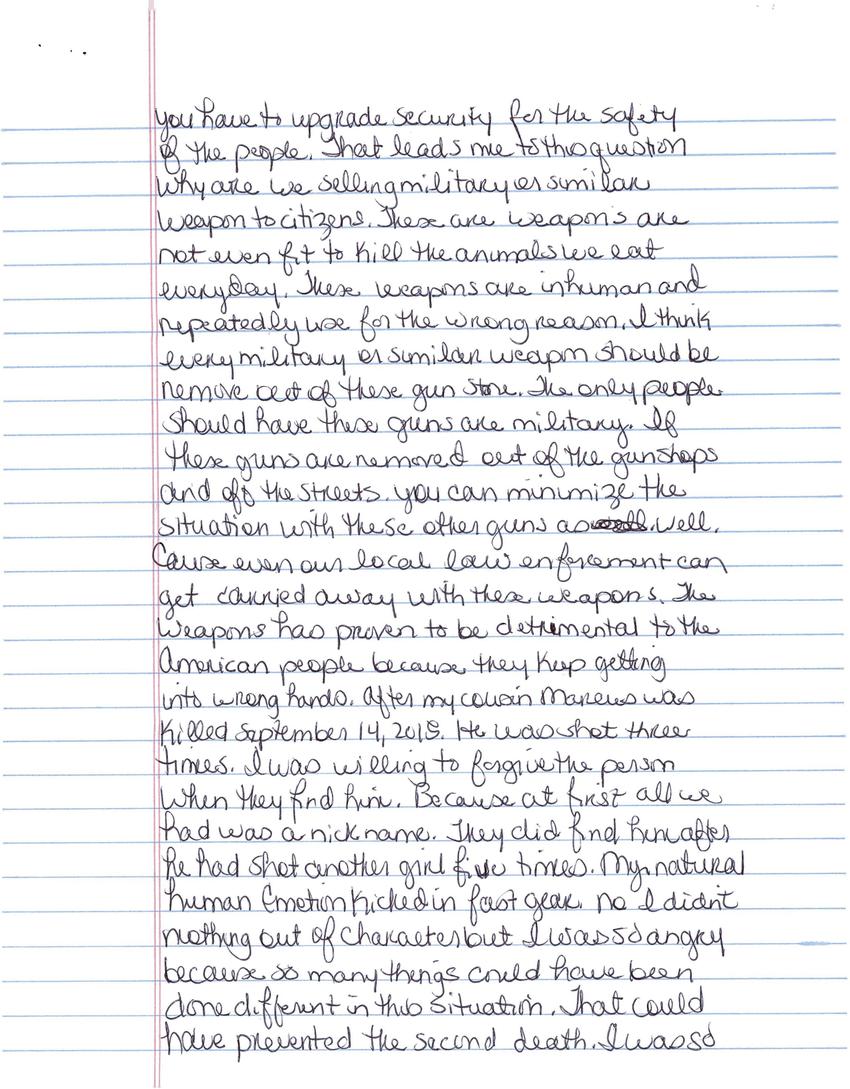 you have to upgrade security for the safety
of the people. That leads me to this question
why are we selling military or similar
weapon to citizens. These are weapons are
not even fit to kill the animals we eat
everyday. These weapons are inhuman and
repeatedly use for the wrong reason. I think
every military or similar weapon should be
remove out of these gun store. The only people
should have these guns are military. If
these guns are removed out of the gunshops
and off the streets. you can minimize the
situation with these other guns as well.
Cause even our local law enforcement can
get carried away with these weapons. The
weapons has proven to be detrimental to the
American people because they keep getting
into wrong hands. After my cousin Marcus was
killed September 14, 2018. He was shot three
times. I was willing to forgive the person
when they find him. Because at first all we
had was a nickname. They did find him after
he had shot another girl five times. My natural
human Emotion kicked in fast gear. no I didn't
nothing out of character but I was so angry
because so many things could have been
done different in this situation. That could
have prevented the second death. I was so